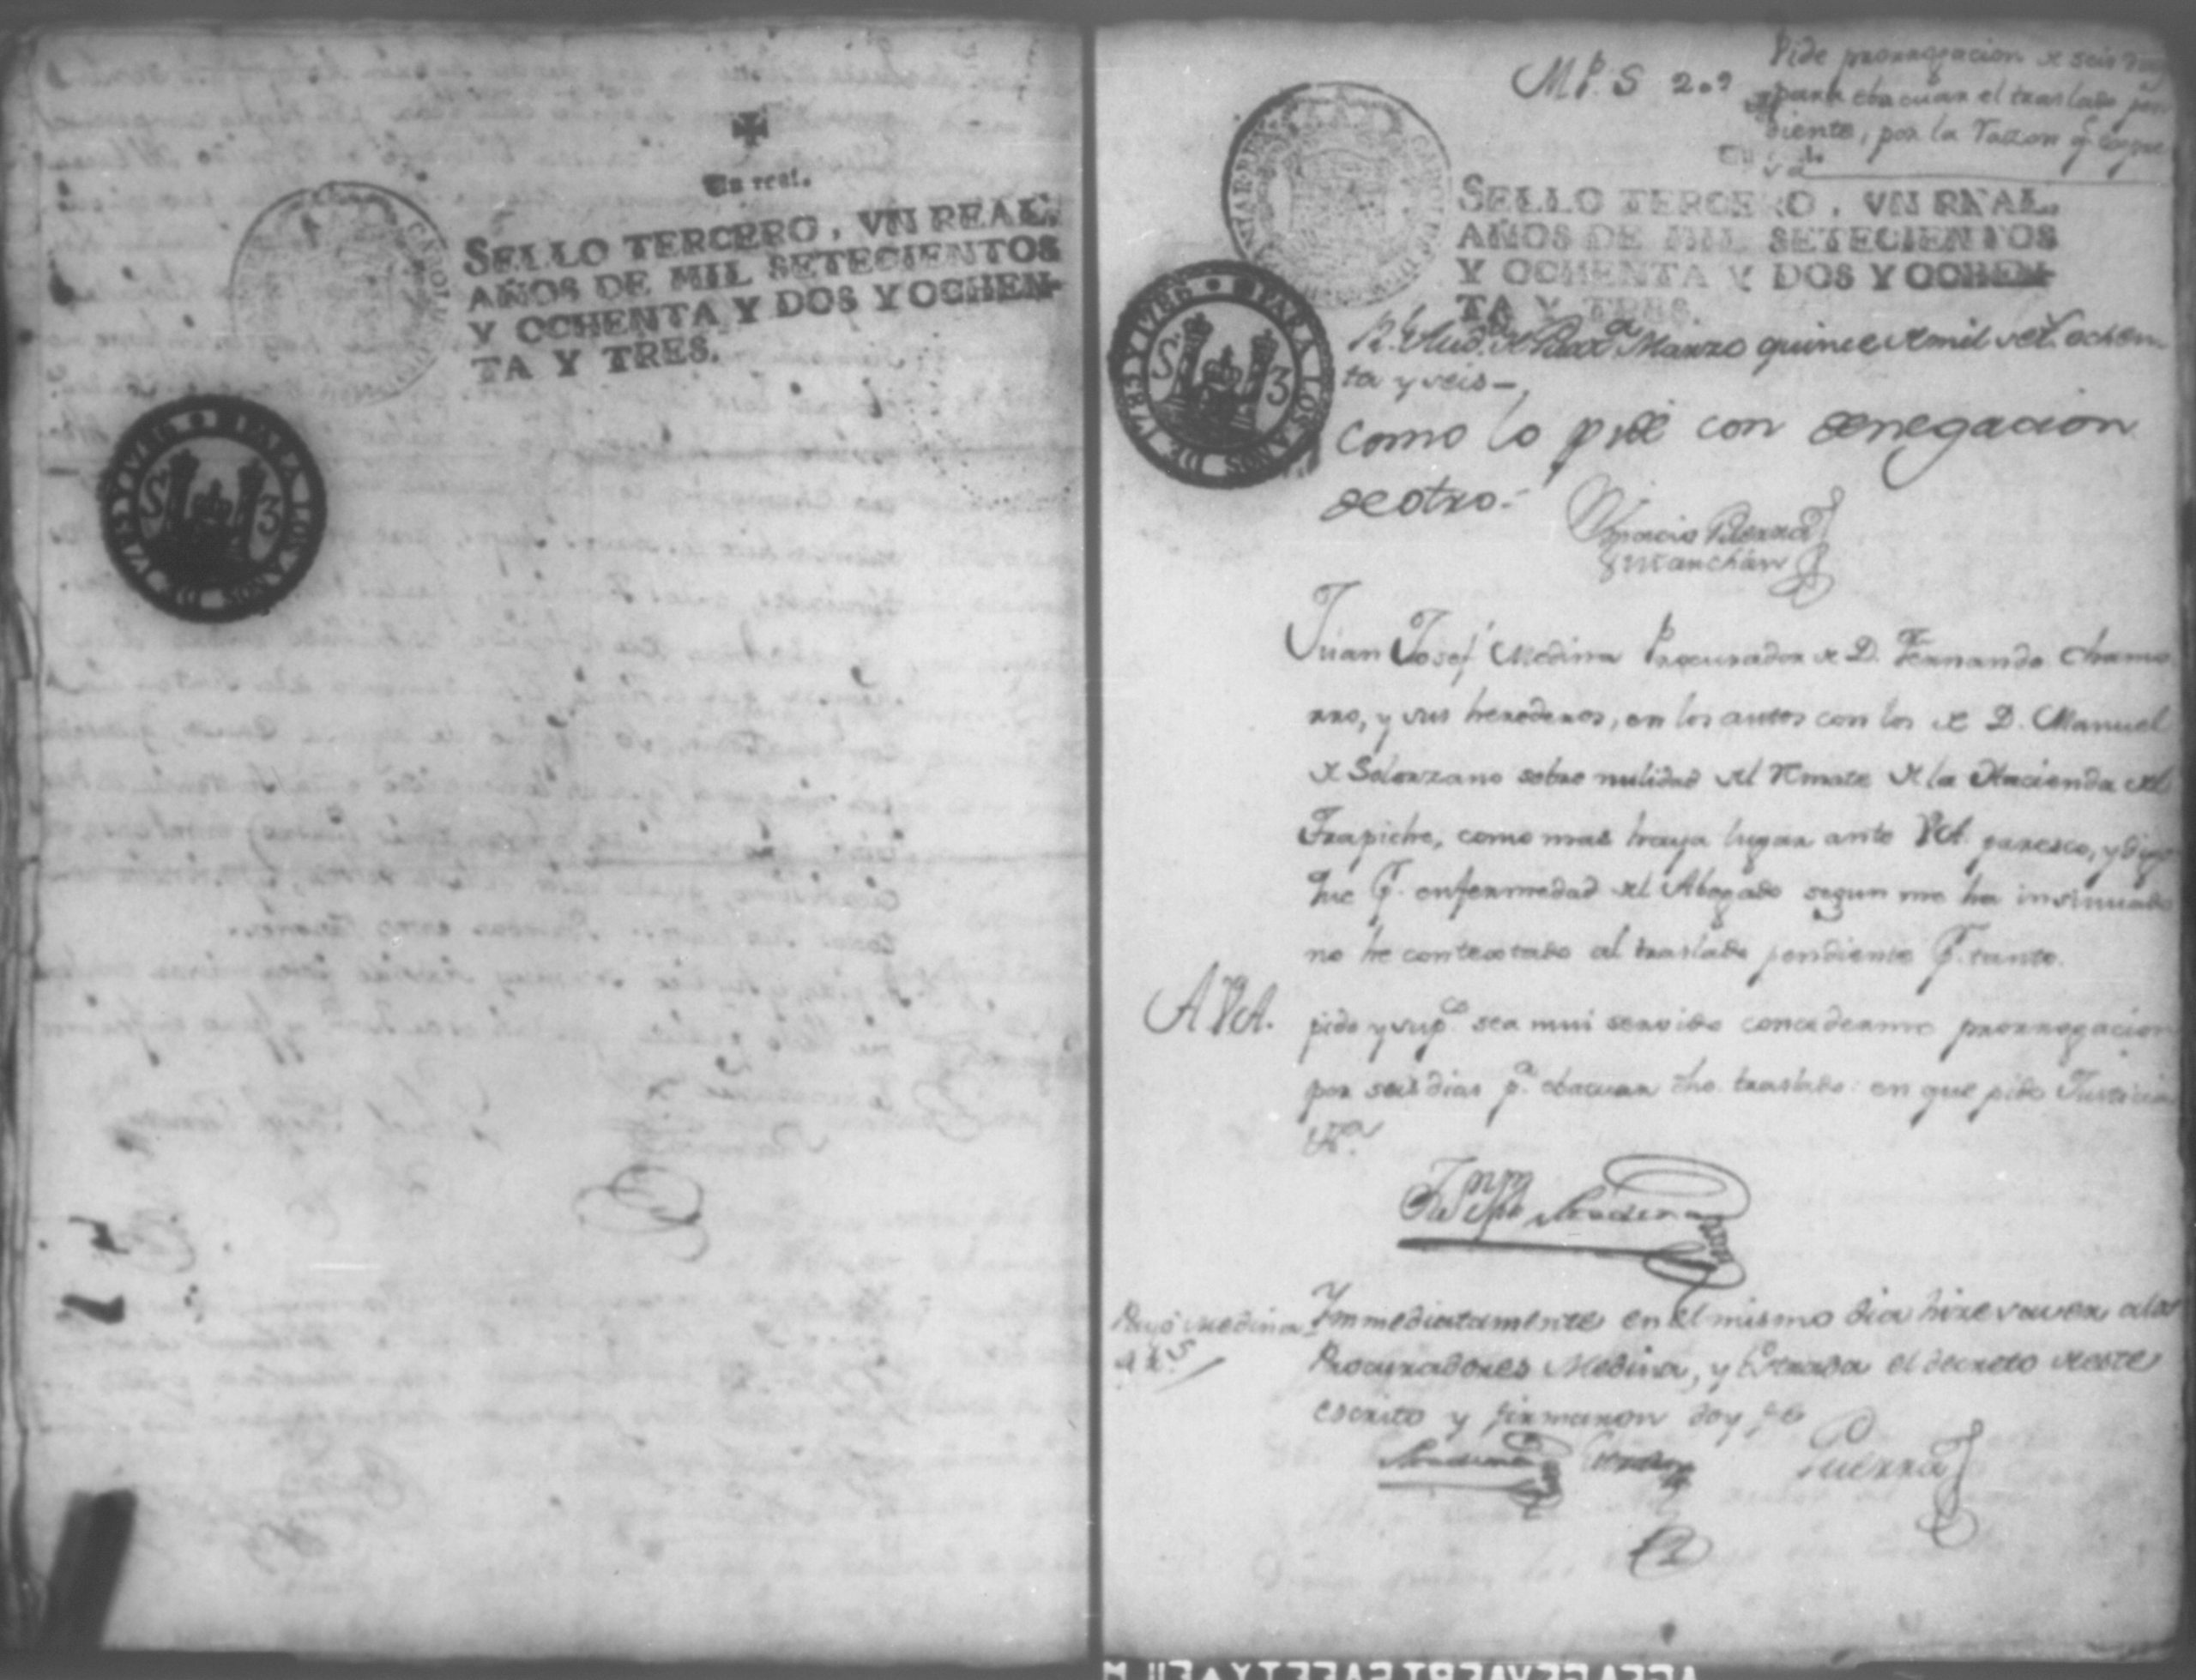 Un real.
SELLO TERCERO, VN REAL,
AÑOS DE MIL SETECIENTOS
Y OCHENTA Y DOS Y OCHEN-
TA Y TRES.
PARA LOS AÑOS DE 1785 Y 1786
S. 3
M. P. S.
Pide prorrogacion de seis dias
para ebacuar el traslado pen
diente, por la razon q.e
SELLO TERCERO, VN REAL,
AÑOS DE MIL SETECIENTOS
Y OCHENTA Y DOS Y OCHEN-
TA Y TRES.
PARA LOS AÑOS DE 1785 Y 1786
S. 3
R.l Aud.a Marzo quince de mil set. ochen
ta y seis
Como lo pide con denegacion
de otro.
Ignacio Guerra
y Marchán
Juan Josef Medina Procurador de D. Fernando Chamo
rro, y sus herederos, en los autos con los de D. Manuel
de Solorzano sobre nulidad del remate de la Hacienda del
Trapiche, como mas haya lugar ante VA. paresco, y digo
que p.r enfermedad del Abogado segun me ha insinuado
no he contextado al traslado pendiente p.r tanto.
A VA. pido y sup.co sea mui servido concederme prorrogacion
por seis dias p.a ebacuar dho. traslado: en que pido Justicia
Medina
Pagó Medina
4 r.s
Ymmediatamente en el mismo dia hize saver a los
Procuradores Medina, y Estrada el decreto de este
escrito y firmaron doy fe
Medina Estrada Guerra